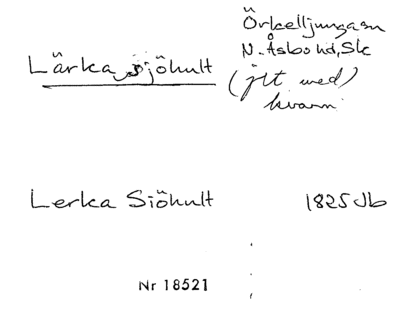 Örkelljungasn
N. Åsbo hd, Sk
Lärka sjöhult
(jtt med)
kvarn
Lerka Siöhult 1825 Jb
Nr 18521